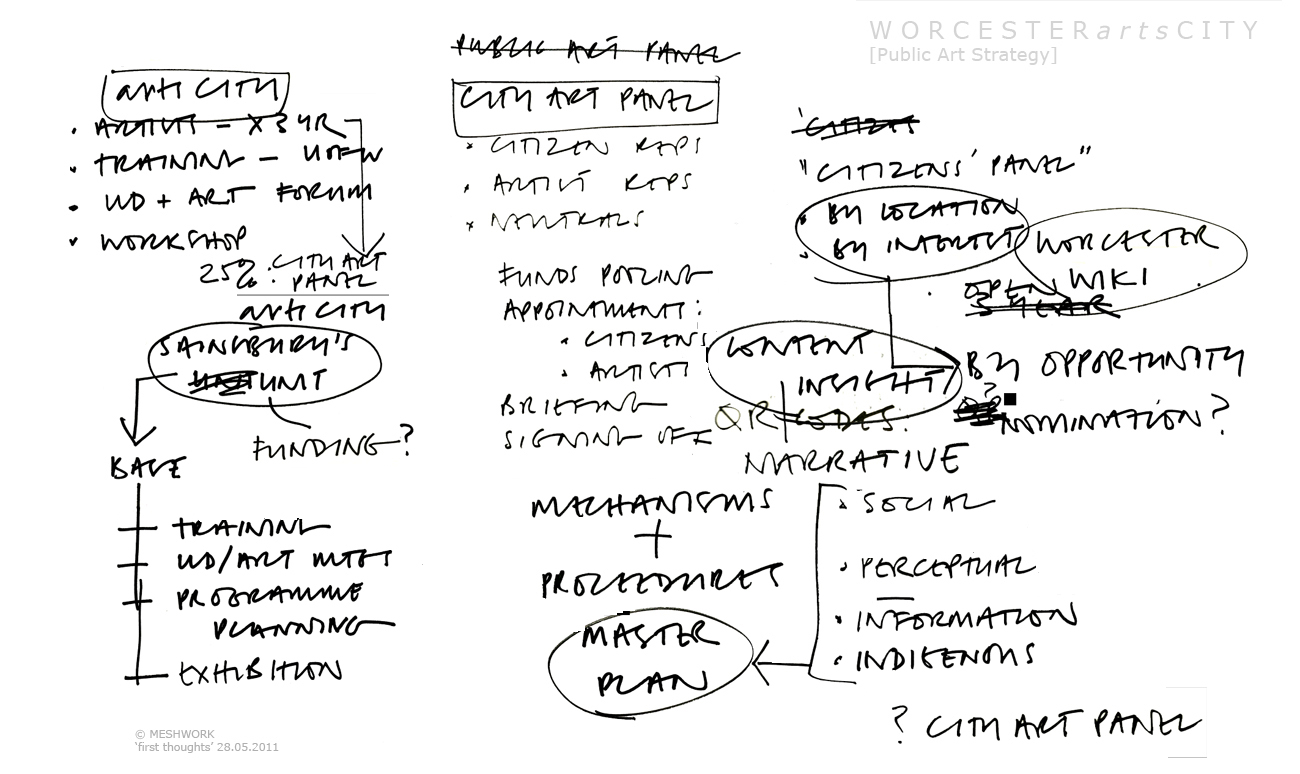 WORCESTERartsCITY
[Public Art Strategy]
arts CITY
• ARTISTS - X 3 YR
• TRAINING - UOFW
• UD + ART FORUM
• WORKSHOP
25% : CITY ART
PANEL
arts CITY
SAINSBURY'S
UNIT
FUNDING?
BASE
TRAINING
UD/ART MTGS
PROGRAMME
PLANNING
EXHIBITION
PUBLIC ART PANEL
CITY ART PANEL
• CITIZEN REPS
• ARTIST REPS
• NEUTRALS
FUNDS POOLING
APPOINTMENTS:
• CITIZENS
• ARTISTS
BRIEFING
SIGNING OFF
MECHANISMS
+
PROCEDURES
MASTER
PLAN
"CITIZENS' PANEL"
• BY LOCATION
• BY INTEREST
WORCESTER
WIKI
• OPEN
3 YEAR
CONTENT
INSIGHT
BY OPPORTUNITY
?
NOMINATION?
QR CODES.
NARRATIVE
• SOCIAL
• PERCEPTUAL
• INFORMATION
• INDIGENOUS
? CITY ART PANEL
© MESHWORK
'first thoughts' 28.05.2011